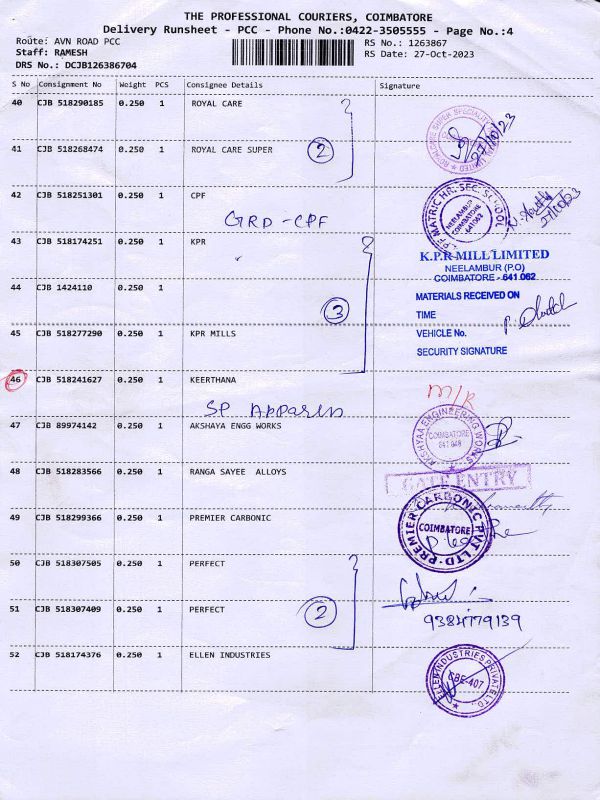 THE PROFESSIONAL COURIERS, COIMBATORE
Delivery Runsheet - PCC - Phone No.:0422-3505555 - Page No.:4
Route: AVN ROAD PCC RS No.: 1263867
Staff: RAMESH RS Date: 27-Oct-2023
DRS No.: DCJB126386704
S No Consignment No Weight PCS Consignee Details Signature
40 CJB 518290185 0.250 1 ROYAL CARE
27/10/23
41 CJB 518268474 0.250 1 ROYAL CARE SUPER
2
42 CJB 518251301 0.250 1 CPF
GRD-CPF
MATRIC HR. SEC. SCHOOL
NEELAMBUR
COIMBATORE
641062
27/10/23
43 CJB 518174251 0.250 1 KPR
K.P.R MILL LIMITED
NEELAMBUR (P.O)
COIMBATORE - 641 062
44 CJB 1424110 0.250 1
MATERIALS RECEIVED ON
TIME
3
VEHICLE No.
45 CJB 518277290 0.250 1 KPR MILLS
SECURITY SIGNATURE
46 CJB 518241627 0.250 1 KEERTHANA
M/R
SP Apparels
47 CJB 89974142 0.250 1 AKSHAYA ENGG WORKS
AKSHAYAA ENGINEERING WORKS
COIMBATORE
48 CJB 518283566 0.250 1 RANGA SAYEE ALLOYS
GATE ENTRY
49 CJB 518299366 0.250 1 PREMIER CARBONIC
PREMIER CARBONIC PVT LTD
COIMBATORE
50 CJB 518307505 0.250 1 PERFECT
51 CJB 518307409 0.250 1 PERFECT
2
52 CJB 518174376 0.250 1 ELLEN INDUSTRIES
ELLEN INDUSTRIES PRIVATE LTD
CBE-407